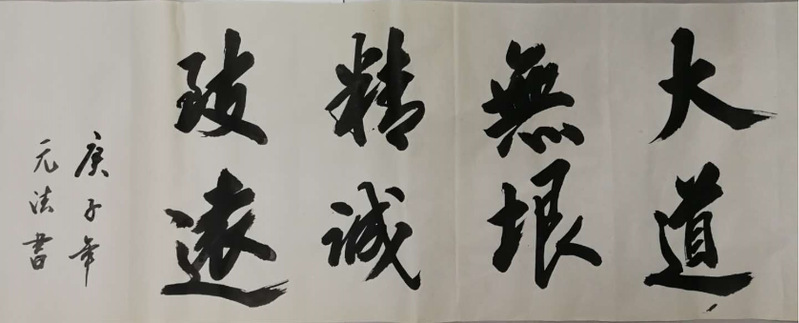 大道
無垠
精誠
致遠
庚子年
元法書